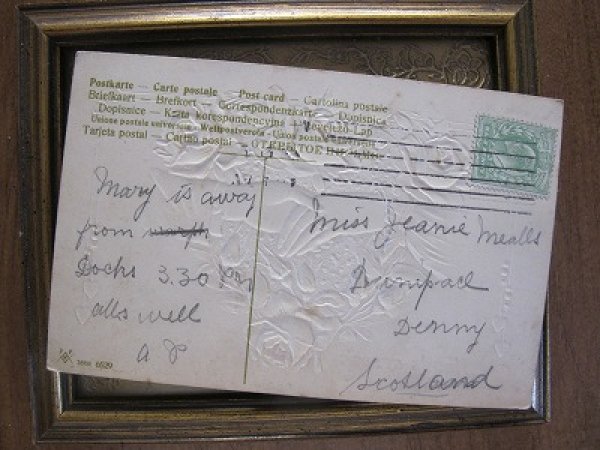 Postkarte — Carte postale — Post card — Cartolina postale
Briefkaart — Brefkort — Correspondenzkarte — Dopisnica
Dopisnice — Karta korespondencyjna — Levelező-Lap
Union postale universelle — Weltpostverein — Union postale
Tarjeta postal — Cartao postal —
Mary is away
from
Docks 3.30
alls well
Miss Jeanie Mealls
Denny
Scotland